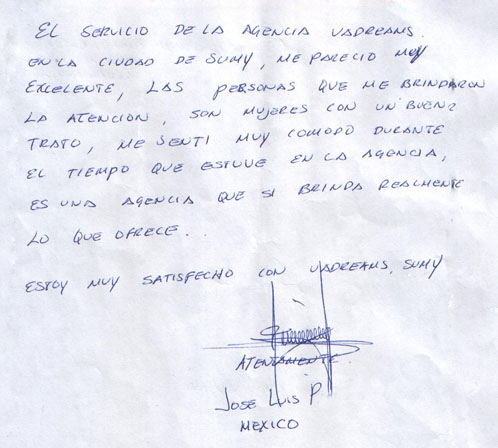 EL SERVICIO DE LA AGENCIA UADREAMS.
EN LA CIUDAD DE SUMY, ME PARECIO MUY
EXCELENTE, LAS PERSONAS QUE ME BRINDARON
LA ATENCION, SON MUJERES CON UN BUEN
TRATO, ME SENTI MUY COMODO DURANTE
EL TIEMPO QUE ESTUVE EN LA AGENCIA,
ES UNA AGENCIA QUE SI BRINDA REALMENTE
LO QUE OFRECE.
ESTOY MUY SATISFECHO CON UADREAMS, SUMY
ATENTAMENTE.
JOSE LUIS P
MEXICO